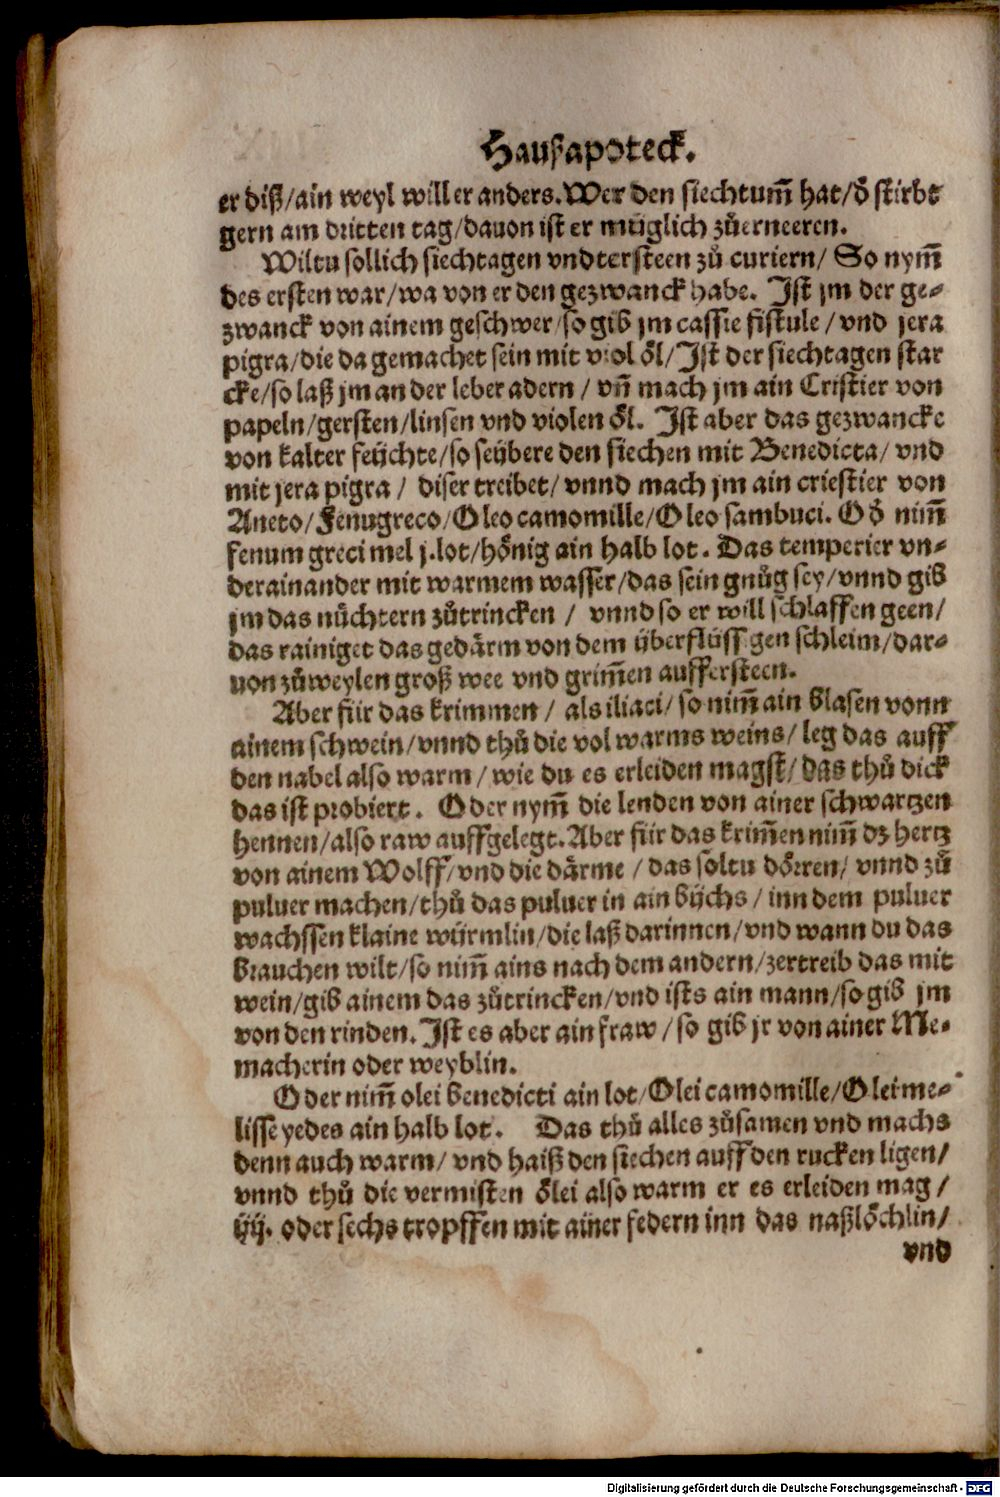 Haußapoteck.
er diß/ain weyl will er anders. Wer den siechtum̃ hat/ð stirbt
gern am dritten tag/dauon ist er müglich zůerneeren.
Wiltu sollich siechtagen vndtersteen zů curiern/ So nym̃
des ersten war/wa von er den gezwanck habe. Ist jm der ge-
zwanck von ainem geschwer/so gib jm cassie fistule/vnd jera
pigra/die da gemachet sein mit viol öl/Ist der siechtagen star
cke/so laß jm an der leber adern/vñ mach jm ain Cristier von
papeln/gersten/linsen vnd violen öl. Ist aber das gezwancke
von kalter feüchte/so seübere den siechen mit Benedicta/ vnd
mit jera pigra/ diser treibet/vnnd mach jm ain criestier von
Aneto/Fenugreco/Oleo camomille/Oleo sambuci. Oð nim̃
fenum greci mel j.lot/hönig ain halb lot. Das temperier vn-
derainander mit warmem wasser/das sein gnůg sey/vnnd gib
jm das nüchtern zůtrincken/ vnnd so er will schlaffen geen/
das rainiget das gedärm von dem überflüssigen schleim/dar-
uon zůweylen groß wee vnd grim̃en auffersteen.
Aber für das krimmen/ als iliaci/so nim̃ ain blasen vonn
ainem schwein/vnnd thů die vol warms weins/leg das auff
den nabel also warm/wie du es erleiden magst/das thů dick
das ist probiert. Oder nym̃ die lenden von ainer schwartzen
hennen/also raw auffgelegt. Aber für das krim̃en nim̃ dz hertz
von ainem Wolff/vnd die därme/das soltu dörren/ vnnd zů
puluer machen/thů das puluer in ain büchs/inn dem puluer
wachssen klaine würmlin/die laß darinnen/vnd wann du das
brauchen wilt/so nim̃ ains nach dem andern/zertreib das mit
wein/gib ainem das zůtrincken/vnd ists ain mann/so gib jm
von den rinden. Ist es aber ain fraw/so gib jr von ainer Me-
macherin oder weyblin.
Oder nim̃ olei benedicti ain lot/Olei camomille/Olei me-
lisse yedes ain halb lot. Das thů alles zůsamen vnd machs
denn auch warm/vnd haiß den siechen auff den rucken ligen/
vnnd thů die vermisten ölei also warm er es erleiden mag/
iiij. oder sechs tropffen mit ainer federn inn das naßlöchlin/
vnd
Digitalisierung gefördert durch die Deutsche Forschungsgemeinschaft - DFG